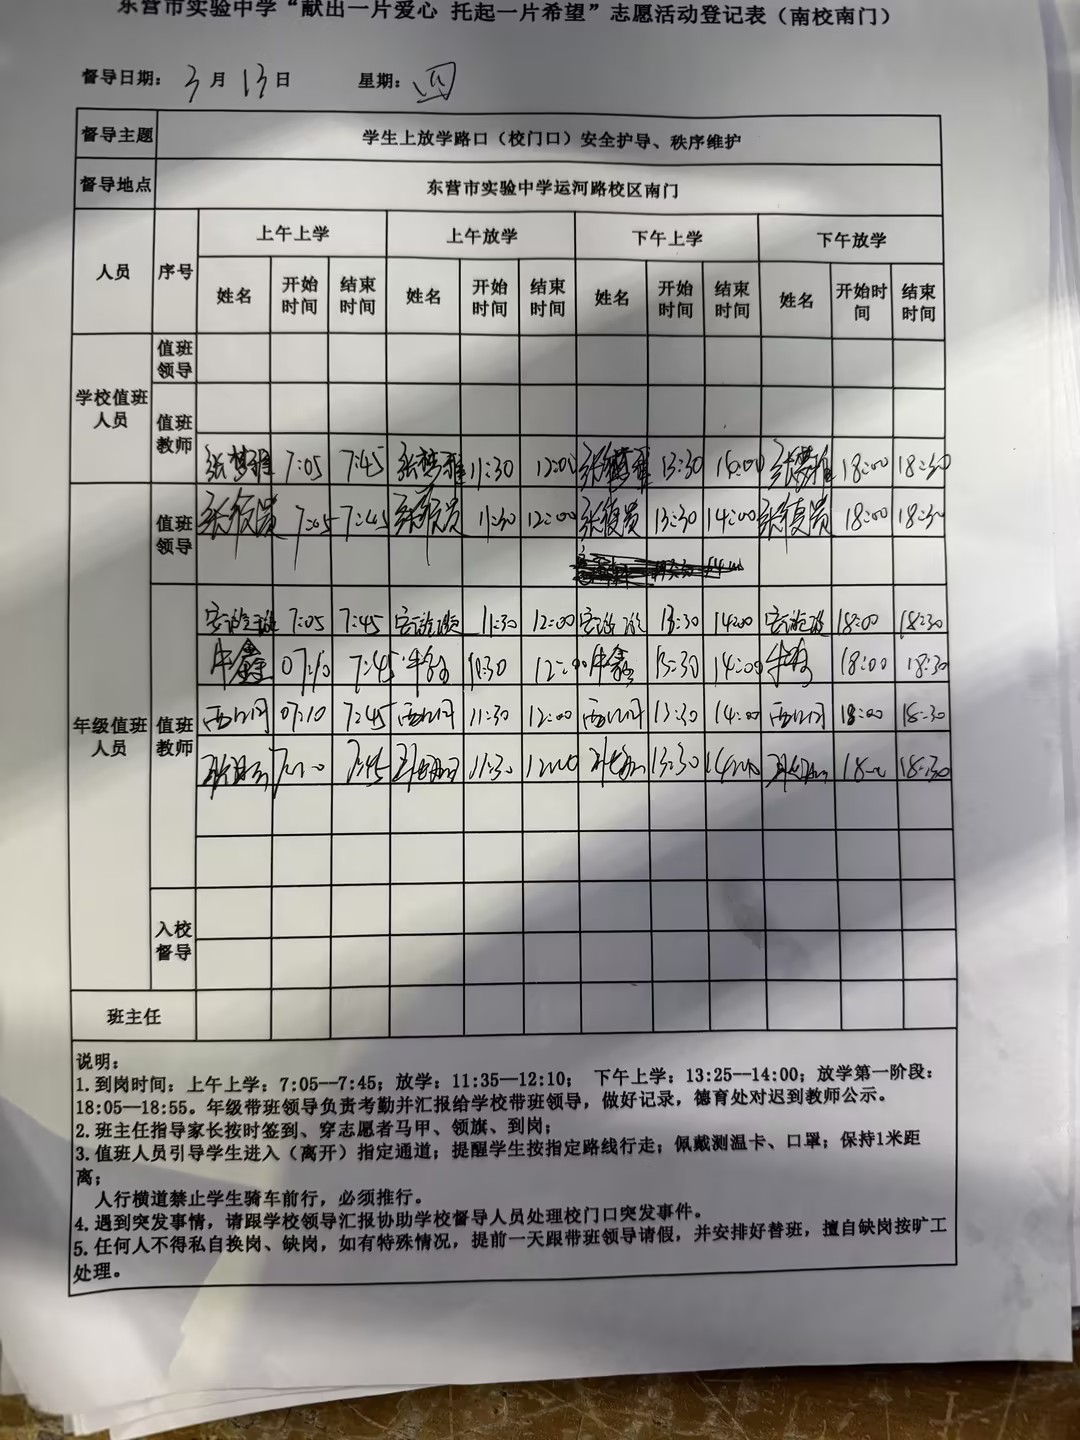 东营市实验中学“献出一片爱心 托起一片希望”志愿活动登记表（南校南门）
督导日期： 3月13日 星期：四
督导主题 学生上放学路口（校门口）安全护导、秩序维护
督导地点 东营市实验中学运河路校区南门
人员 序号 上午上学 上午放学 下午上学 下午放学
姓名 开始时间 结束时间 姓名 开始时间 结束时间 姓名 开始时间 结束时间 姓名 开始时间 结束时间
学校值班人员 值班领导
值班教师
张梦雅 7:05 7:45 张梦雅 11:30 12:00 张梦雅 13:30 14:00 张梦雅 18:00 18:30
值班领导 7:05 7:45 11:30 12:00 13:30 14:00 18:00 18:30
年级值班人员 值班教师
7:05 7:45 11:30 12:00 13:30 14:00 18:00 18:30
牛鑫 07:10 7:45 牛鑫 12:00 牛鑫 13:30 14:00 牛鑫 18:00 18:30
07:10 7:45 11:30 12:00 13:30 14:00 18:00 18:30
7:45 11:30 12:00 13:30 14:00 18:30
入校督导
班主任
说明：
1.到岗时间：上午上学：7:05—7:45；放学：11:35—12:10； 下午上学：13:25—14:00；放学第一阶段：
18:05—18:55。年级带班领导负责考勤并汇报给学校带班领导，做好记录，德育处对迟到教师公示。
2.班主任指导家长按时签到、穿志愿者马甲、领旗、到岗；
3.值班人员引导学生进入（离开）指定通道；提醒学生按指定路线行走；佩戴测温卡、口罩；保持1米距
离；
人行横道禁止学生骑车前行，必须推行。
4.遇到突发事情，请跟学校领导汇报协助学校督导人员处理校门口突发事件。
5.任何人不得私自换岗、缺岗，如有特殊情况，提前一天跟带班领导请假，并安排好替班，擅自缺岗按旷工
处理。